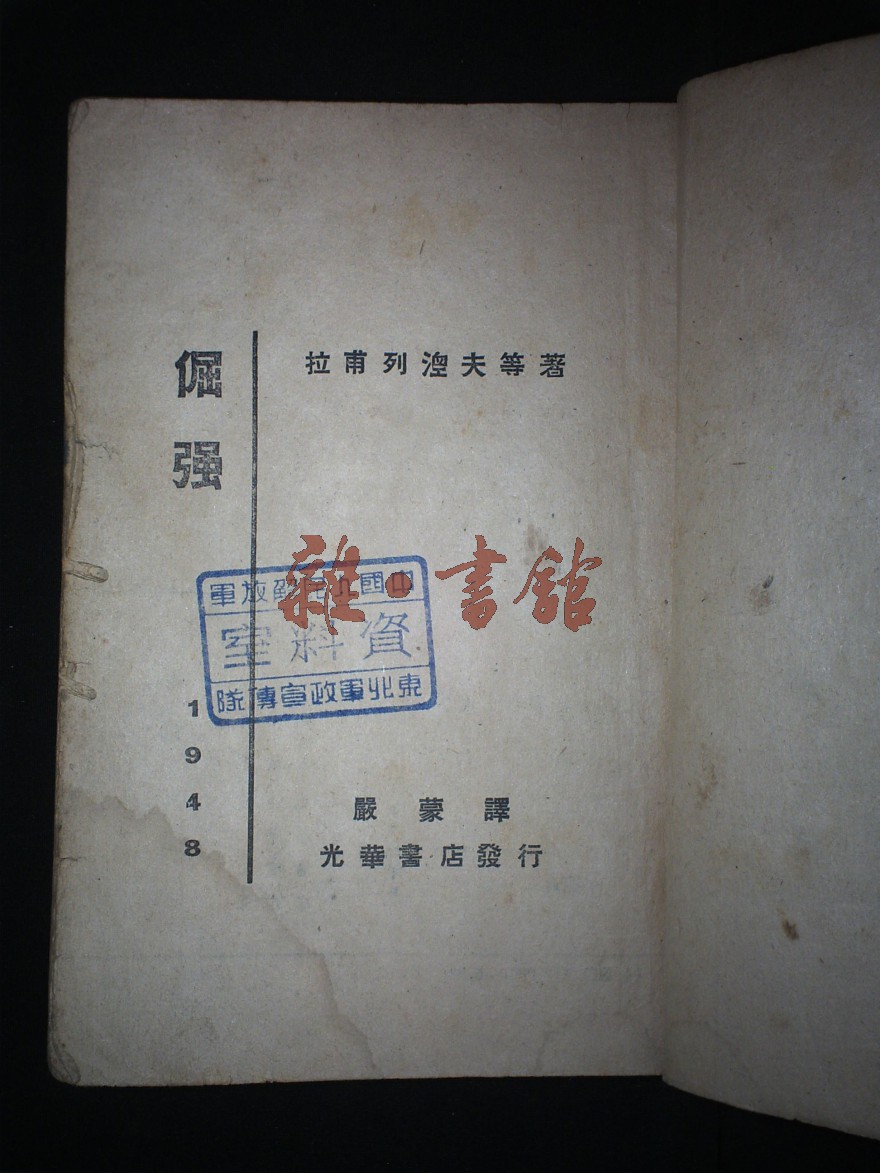 倔强
1948
拉甫列湼夫等著
嚴蒙譯
光華書店發行
中國人民解放軍
資料室
東北軍政宣傳隊
雜·書館